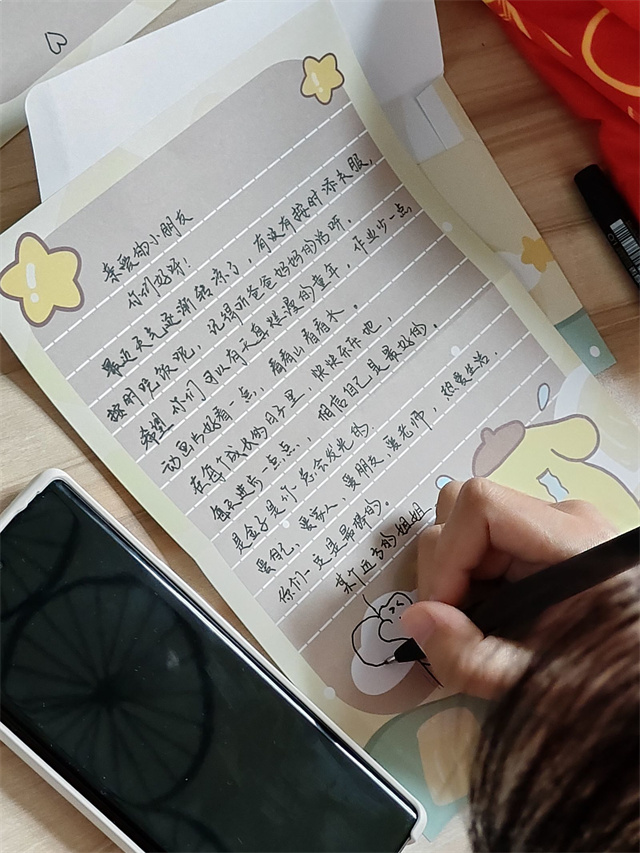 亲爱的小朋友
你们好呀！
最近天气逐渐转凉了，有没有按时添衣服，
按时吃饭呢，记得听爸爸妈妈的话呀。
希望你们可以有天真烂漫的童年，作业少一点，
动画片好看一点，看看山看看水。
在每个成长的日子里，快快乐乐地，
每天进步一点点，相信自己是最好的。
是金子是你总会发光的，
爱自己，爱家人，爱朋友，爱老师，热爱生活。
你们一定是最棒的。
某个远方的姐姐